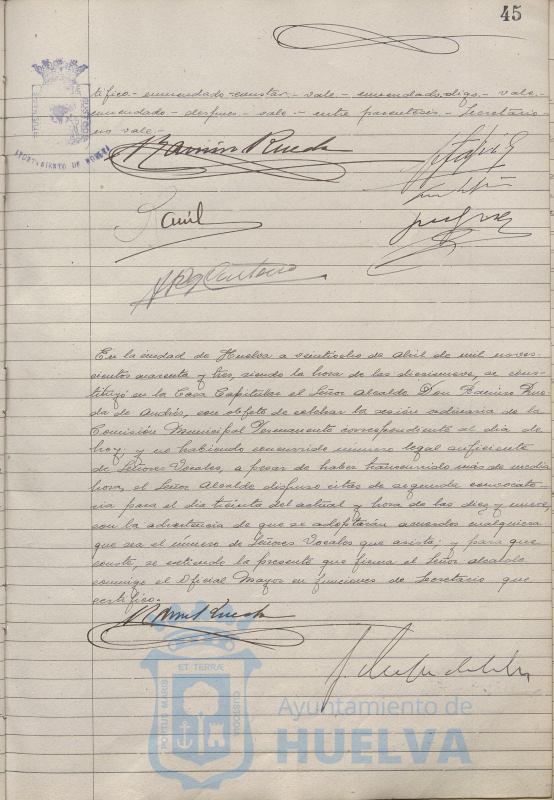 45
tifico.- enmendado-constar.- vale.- enmendado.digo.- vale-
enmendado - despues - vale - entre parentesis - Secretario
no vale.-
AYUNTAMIENTO DE HUELVA
Ramón Rueda
En la ciudad de Huelva a veintiocho de Abril de mil noves-
cientos cuarenta y tres, siendo la hora de las diecinueve, se cons-
tituyó en la Casa Capitular el Señor Alcalde Don Ramiro Rue-
da de Andrés, con objeto de celebrar la sesión ordinaria de la
Comisión Municipal Permanente correspondiente al día de
hoy, y no habiendo concurrido número legal suficiente
de Señores Vocales, a pesar de haber transcurrido más de media
hora, el Señor Alcalde dispuso citar de segunda convocato-
ria para el día treinta del actual y hora de las diez y nueve,
con la advertencia de que se adoptarán acuerdos cualquiera
que sea el número de Señores Vocales que asista; y para que
conste, se extiende la presente que firma el Señor alcalde
conmigo el Oficial Mayor en funciones de Secretario que
certifico.-
PORTUS MARIS
ET TERRÆ
CUSTODIA
Ayuntamiento de
HUELVA